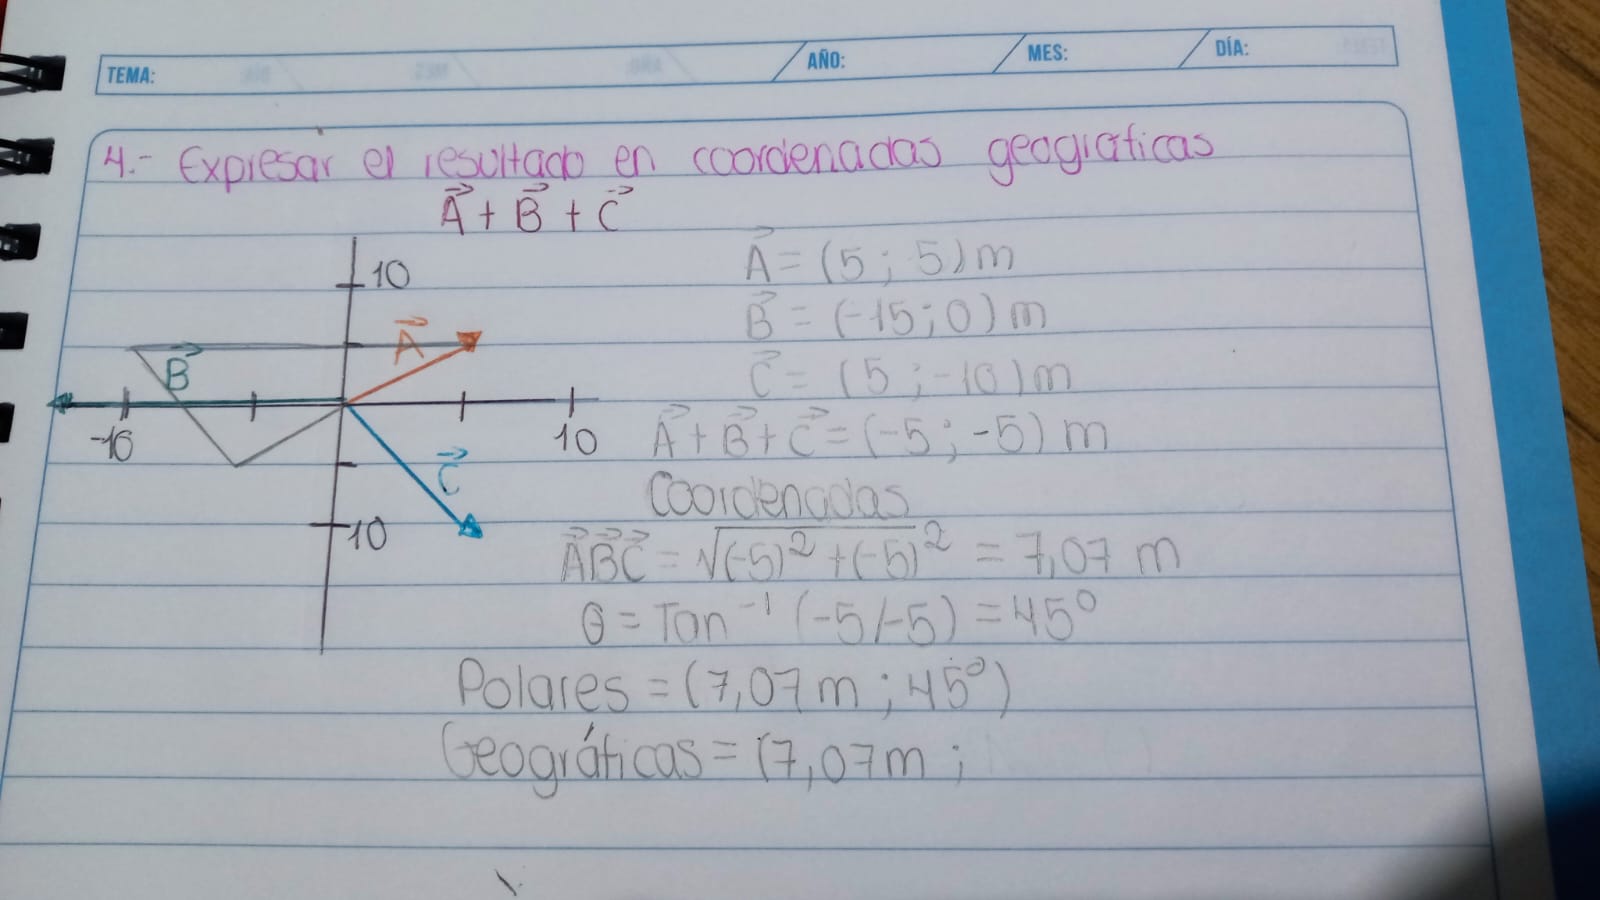 TEMA: AÑO: MES: DÍA:
4.- Expresar el resultado en coordenadas geográficas
A⃗ + B⃗ + C⃗
A⃗ = (5 ; 5) m
10
B⃗ = (-15 ; 0) m
A⃗
B⃗
C⃗ = (5 ; -10) m
-10
10
A⃗ + B⃗ + C⃗ = (-5 ; -5) m
C⃗
Coordenadas
10
A⃗B⃗C⃗ = √(-5)² + (-5)² = 7,07 m
θ = Tan⁻¹ (-5/-5) = 45°
Polares = (7,07 m ; 45°)
Geográficas = (7,07 m ;